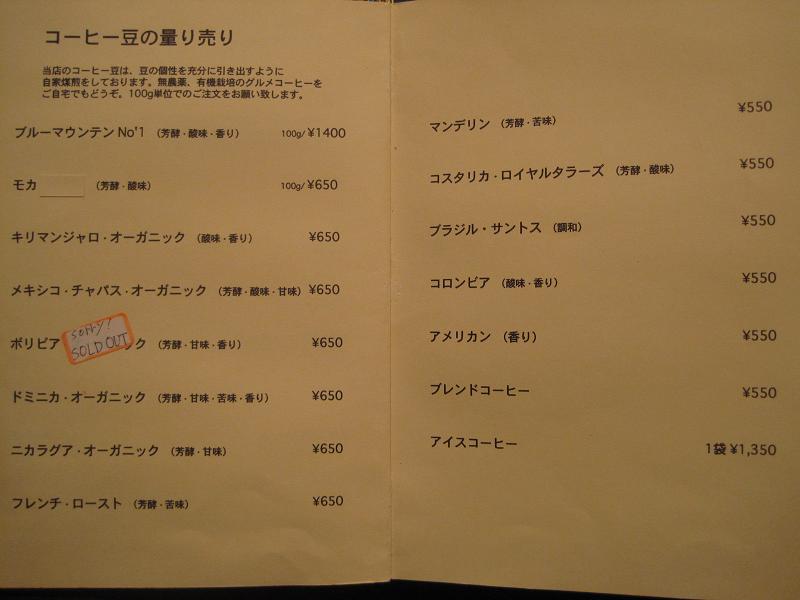 コーヒー豆の量り売り
当店のコーヒー豆は、豆の個性を充分に引き出すように
自家煤煎をしております。無農薬、有機栽培のグルメコーヒーを
ご自宅でもどうぞ。100g単位でのご注文をお願い致します。
ブルーマウンテン No'1 （芳醇・酸味・香り） 100g/ ¥1400
モカ （芳醇・酸味） 100g/ ¥650
キリマンジャロ・オーガニック （酸味・香り） ¥650
メキシコ・チャパス・オーガニック （芳醇・酸味・甘味） ¥650
ボリビア sorry! SOLD OUT ック （芳醇・甘味・香り） ¥650
ドミニカ・オーガニック （芳醇・甘味・苦味・香り） ¥650
ニカラグア・オーガニック （芳醇・甘味） ¥650
フレンチ・ロースト （芳醇・苦味） ¥650
マンデリン （芳醇・苦味） ¥550
コスタリカ・ロイヤルタラーズ （芳醇・酸味） ¥550
ブラジル・サントス （調和） ¥550
コロンビア （酸味・香り） ¥550
アメリカン （香り） ¥550
ブレンドコーヒー ¥550
アイスコーヒー 1袋 ¥1,350